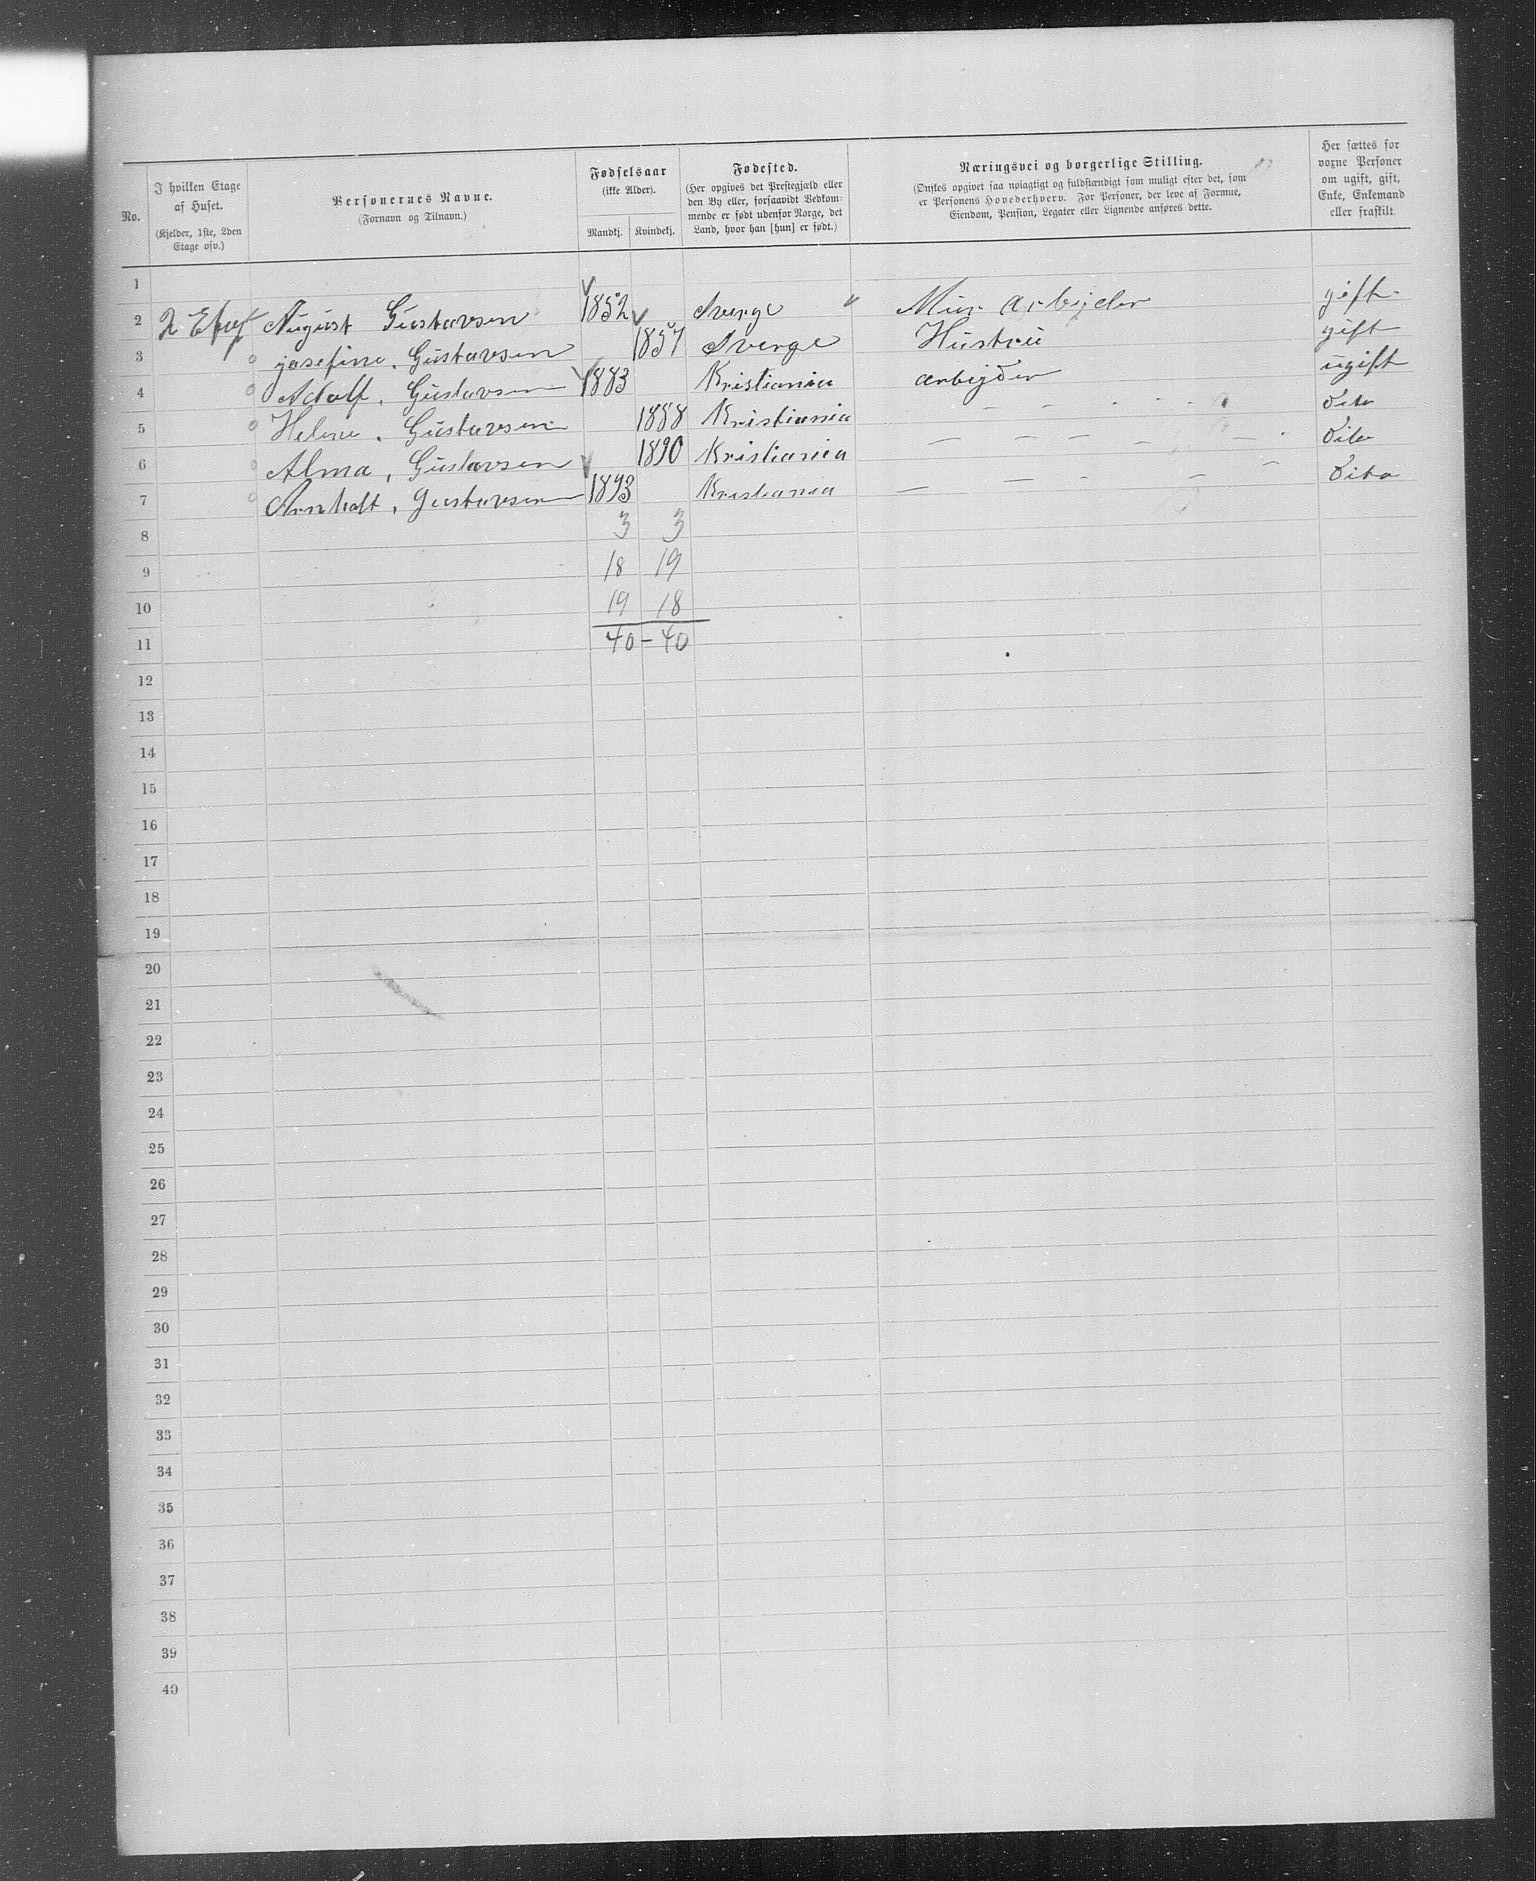 No.
I hvilken Etage af Huset. (Kjelder, 1ste, 2den Etage osv.)
Personernes Navne. (Fornavn og Tilnavn.)
Fødselsaar (ikke Alder).
Mandkj. Kvindekj.
Fødested. (Her opgives det Prestegjæld eller den By eller, forsaavidt Vedkommende er født udenfor Norge, det Land, hvor han [hun] er født.)
Næringsvei og borgerlige Stilling. (Ønskes opgivet saa nøiagtigt og fuldstændigt som muligt efter det, som er Personens Hovederhverv. For Personer, der leve af Formue, Eiendom, Pension, Legater eller Lignende anføres dette.
Her sættes for voxne Personer om ugift, gift, Enke, Enkemand eller fraskilt
1
2 2 August Gustavsen 1852 Sverge " Mur arbejder gift
3 josefine. Gustavsen 1857 Sverge Hustru gift
4 Adolf. Gustavsen 1883 Kristiania arbejder ugift
5 Helene. Gustavsen 1888 Kristiania - - - - - dito
6 Alma, Gustavsen 1890 Kristiania - - - - - dito
7 Arnholt. Gustavsen 1893 Kristiania - - - - - dito
8 3 3
9 18 19
10 19 18
11 40 - 40
12
13
14
15
16
17
18
19
20
21
22
23
24
25
26
27
28
29
30
31
32
33
34
35
36
37
38
39
40